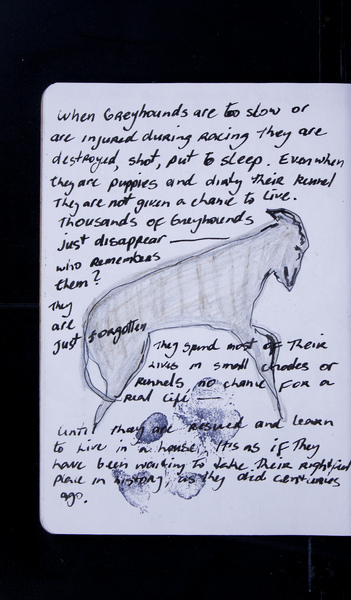 When Greyhounds are too slow or
are injured during racing They are
destroyed, shot, put to sleep. Even when
they are puppies and dirty Their kennel
They are not given a chance to live.
Thousands of Greyhounds
just disappear
who remembers
them?
They
are
just forgotten
They spend most of Their
lives in small crades or
kennels no chance for a
real life
until they are rescued and learn
to live in a house, It's as if They
have been waiting to take Their rightful
place in history as they did centuries
ago.